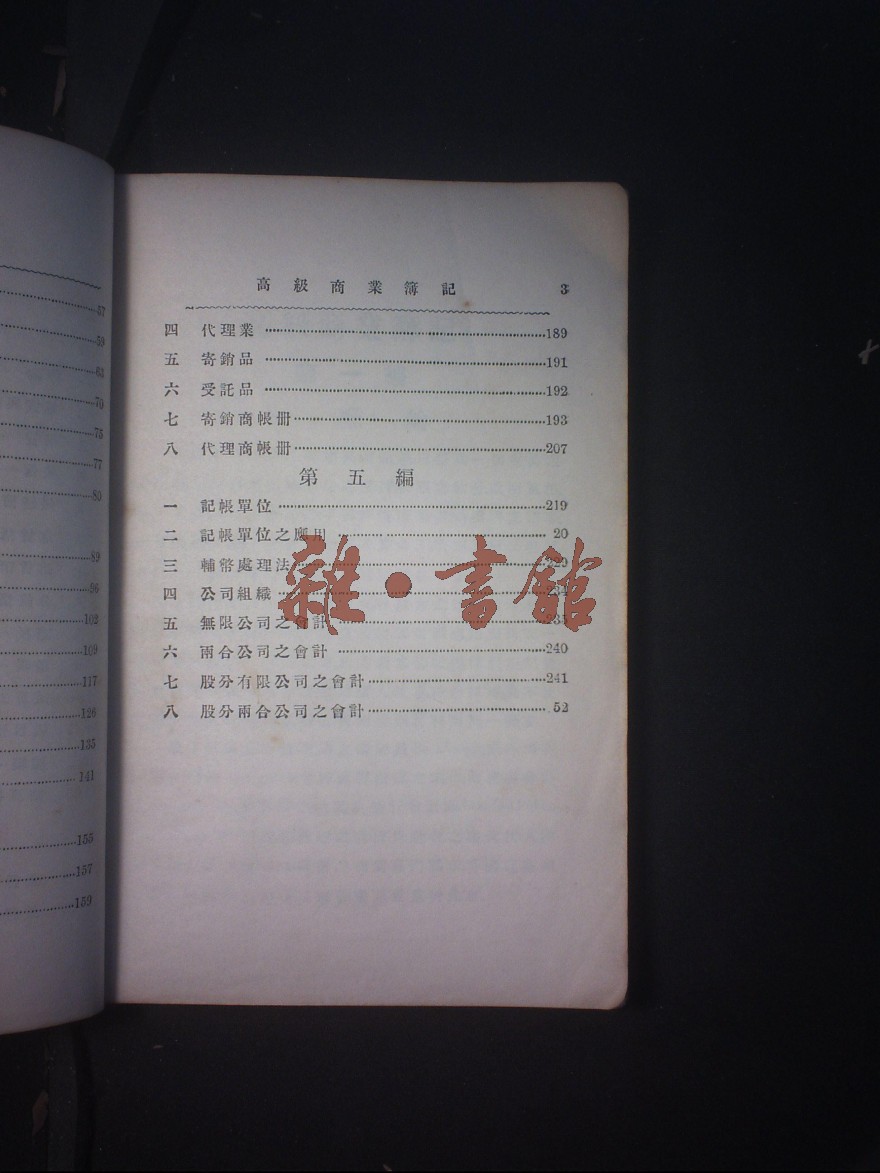 57
59
63
70
75
77
80
89
96
102
109
117
126
135
141
155
157
159
高級商業簿記 3
四 代理業 189
五 寄銷品 191
六 受託品 192
七 寄銷商帳册 193
八 代理商帳册 207
第五編
一 記帳單位 219
二 記帳單位之應用 20
三 輔幣處理法
四 公司組織
五 無限公司之會計 235
六 兩合公司之會計 240
七 股分有限公司之會計 241
八 股分兩合公司之會計 52
雜·書館